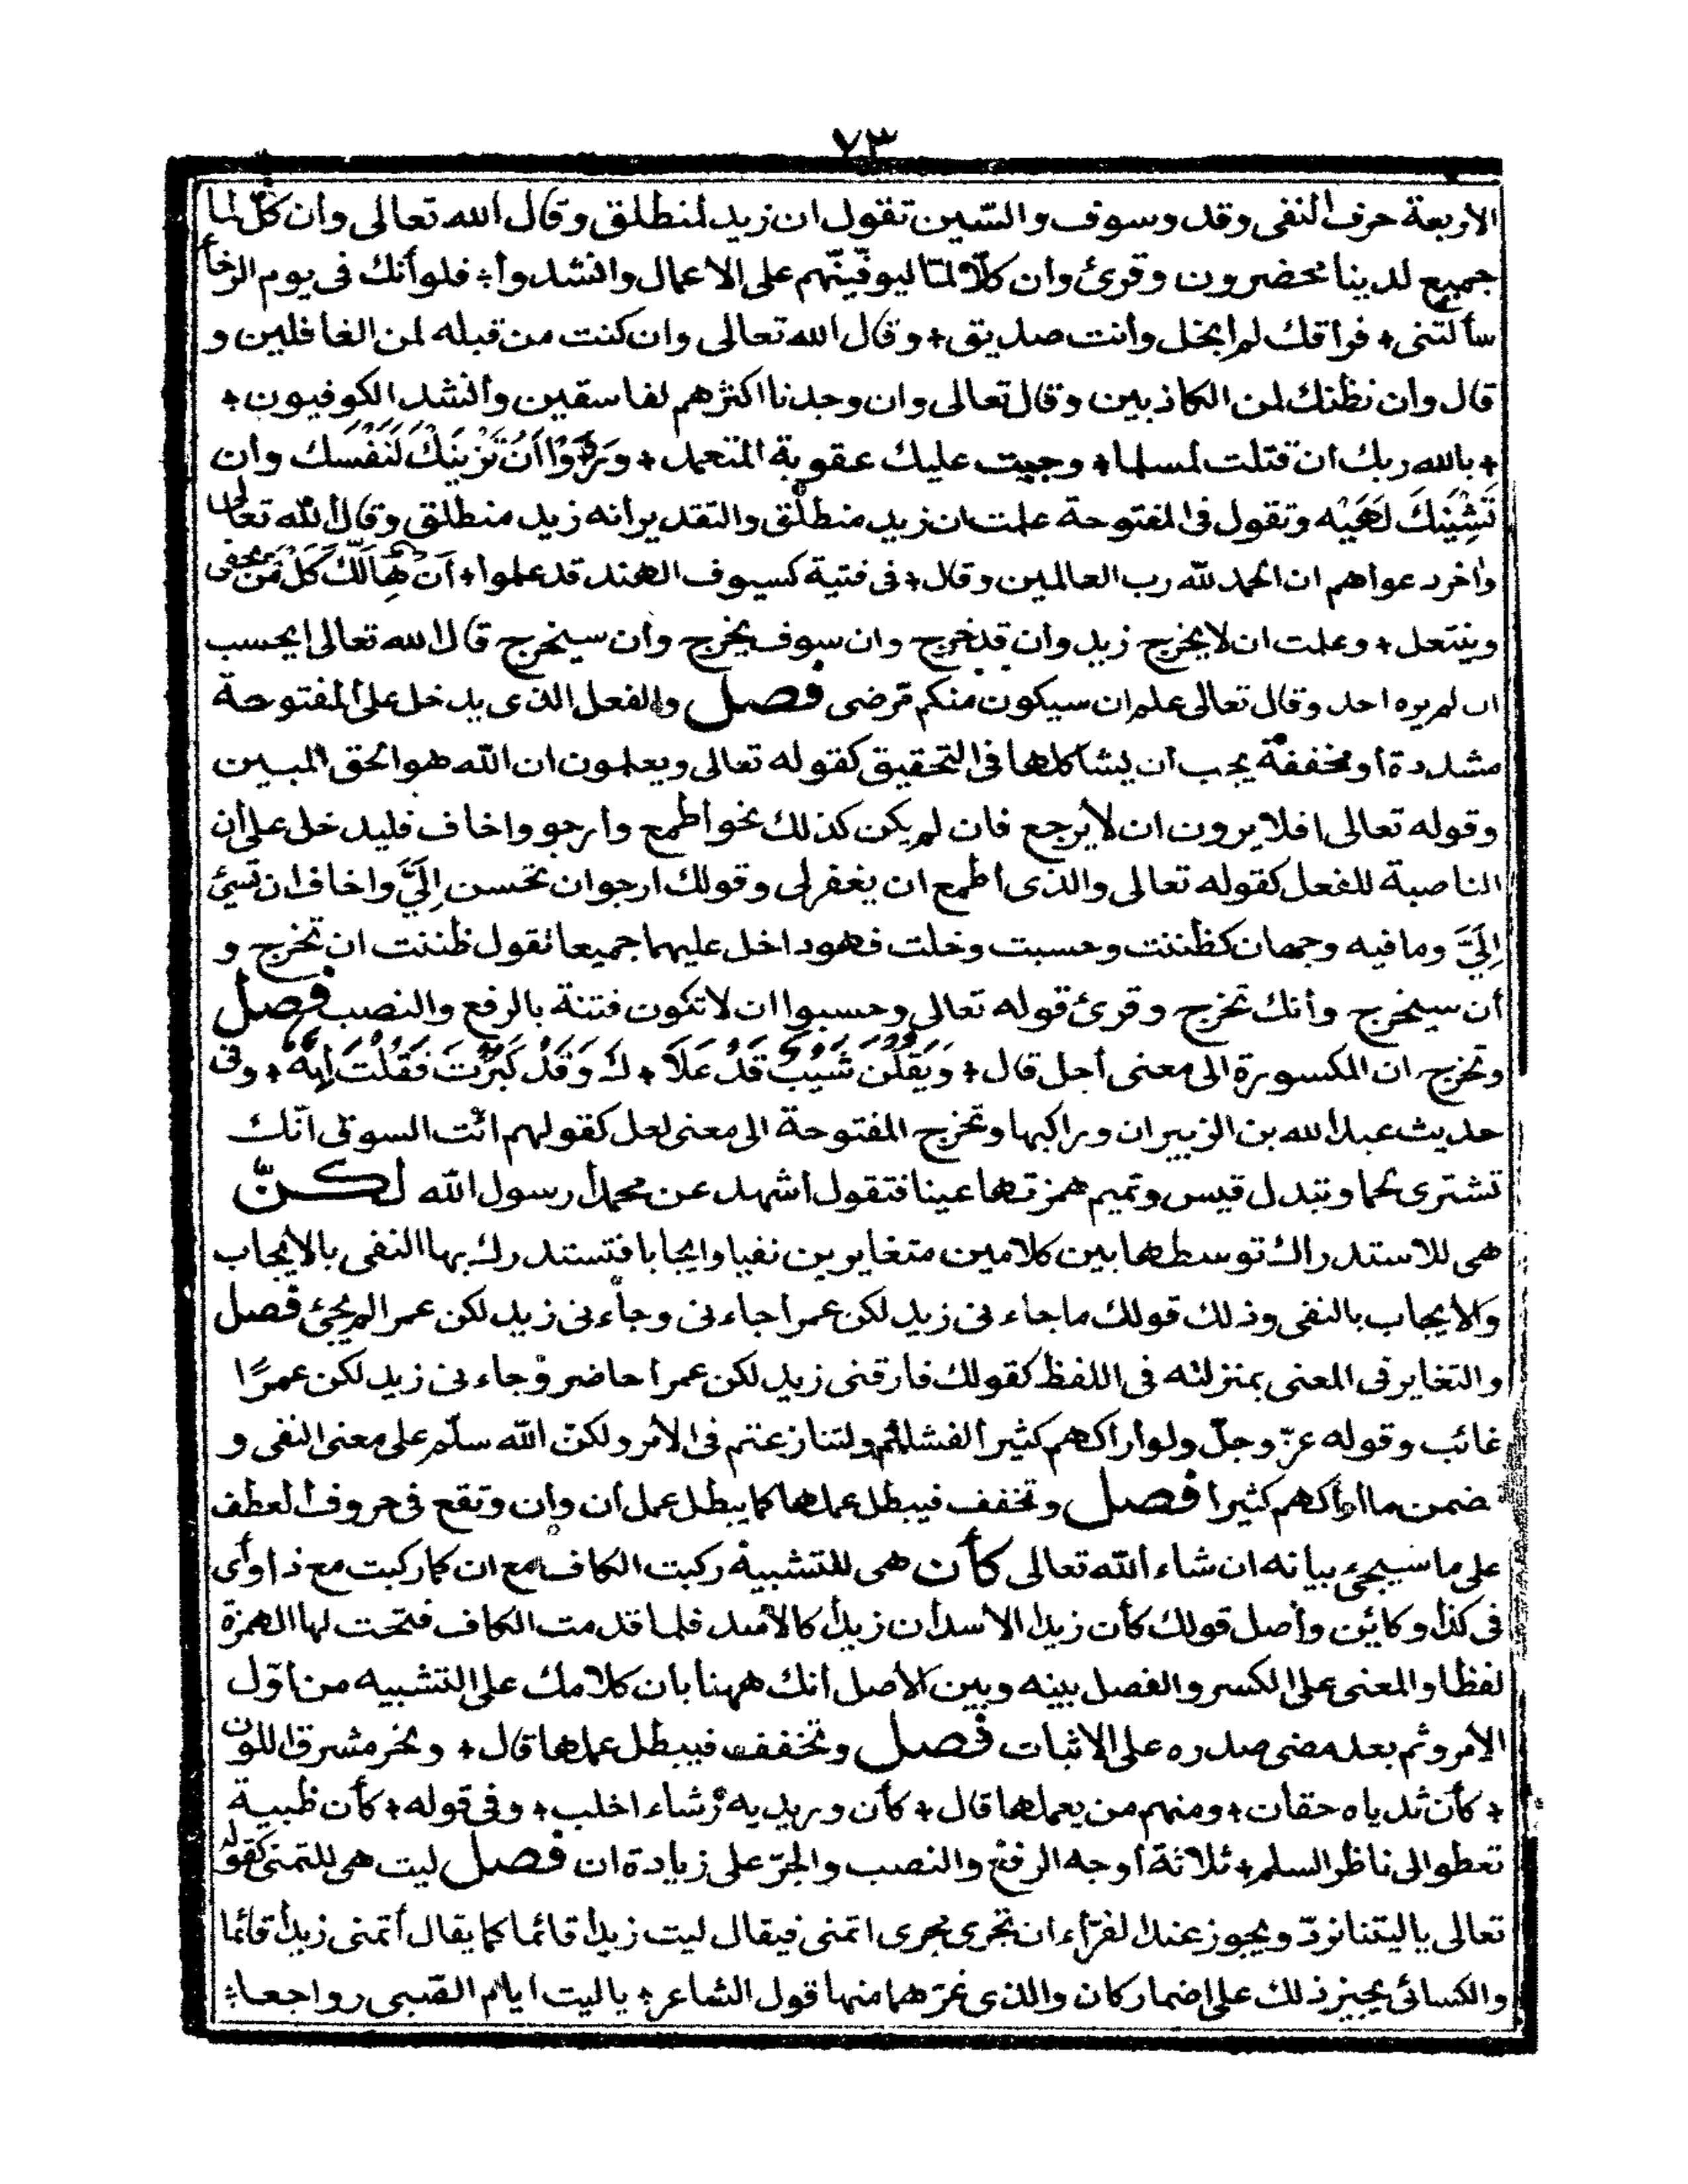 ٧٣
الاربعة حرف النفى وقد وسوف والسّين تقول ان زيد لمنطلق وقال الله تعالى وان كلّ لما
جميع لدينا محضرون وقرئ وان كلّا لمّا ليوفّينّهم على الاعمال وانشدوا ÷ فلو أنك فى يوم الرخأ
سألتنى ÷ فراقك لم ابخل وأنت صديق ÷ وقال الله تعالى وان كنت من قبله لمن الغافلين و
قال وان نظنك لمن الكاذبين وقال تعالى وان وجدنا اكثرهم لفاسقين وانشد الكوفيون ÷
÷ بالله ربك ان قتلت لمسلما ÷ وجبت عليك عقوبة المتعمد ÷ ورووا ان تزينك لنفسك وان
تَشِينكَ لَهيَه وتقول فى المفتوحة علمت ان زيد منطلق والتقدير انه زيد منطلق وقال الله تعالى
واخر دعواهم ان الحمد لله رب العالمين وقال ÷ فى فتية كسيوف الهند قد علموا ÷ أن هالك كل من يحفى
وينتعل ÷ وعلمت ان لا يخرج زيد وان قد خرج وان سوف يخرج وان سيخرج قال الله تعالى ايحسب
ان لم يره احد وقال تعالى علم ان سيكون منكم مّرضى فصل والفعل الذى يدخل على المفتوحة
مشددة أو مخففة يجب أن يشاكلها فى التحقيق كقوله تعالى ويعلمون ان الله هو الحق المبين
وقوله تعالى افلا يرون ان لا يرجع فان لم يكن كذلك نحو أطمع وارجو واخاف فليدخل على أن
الناصبة للفعل كقوله تعالى والذى أطمع ان يغفر لى وقولك ارجو ان تحسن إِلَيَّ واخاف ان تسئ
إِلَيَّ وما فيه وجهان كظننت وحسبت وخلت فهو داخل عليهما جميعا تقول ظننت ان تخرج و
أن سيخرج وأنك تخرج وقرئ قوله تعالى وحسبوا ان لا تكون فتنة بالرفع والنصب فصل
وتخرج ان المكسورة الى معنى أجل قال ÷ وَيَقُلْنَ شَيْبٌ قَدْ عَلَا ÷ كَ وَقَدْ كَبِرْتَ فَقُلْتُ إِنَّهُ ÷ وفى
حديث عبد الله بن الزبير ان وراكبها وتخرج المفتوحة الى معنى لعل كقولهم ائت السوق انّك
تشترى لحما وتبدل قيس وتميم همزتها عينا فتقول اشهد عن محمدا رسول الله لكنّ
هى للاستدراك توسطها بين كلامين متغايرين نفيا وايجابا فتستدرك بها النفى بالايجاب
والايجاب بالنفى وذلك قولك ما جاءنى زيد لكن عمرا جاءنى وجاءنى زيد لكن عمرا لم يجئ فصل
والتغاير فى المعنى بمنزلته فى اللفظ كقولك فارقنى زيد لكن عمرا حاضر وجاءنى زيد لكن عمرًا
غائب وقوله عزّ وجلّ ولو أراكهم كثيرا لفشلتم ولتنازعتم فى الامر ولكنّ الله سلّم على معنى النفى و
تضمن ما اراكهم كثيرا فصل وتخفف فيبطل عملها كما يبطل عمل أن وإن وتقع فى حروف العطف
على ما سيجئ بيانه ان شاء الله تعالى كأن هى للتشبيه ركبت الكاف مع ان كما ركبت مع ذا وأى
فى كذا وكائن وأصل قولك كأن زيدا الاسد أن زيدا كالاسد فلما قدمت الكاف فتحت لها الهمزة
لفظا والمعنى على الكسر والفصل بينه وبين الاصل انك ههنا بان كلامك على التشبيه من اوّل
الامر وثم بعد مضى صدره على الاثبات فصل وتخفف فيبطل عملها قال ÷ ونحر مشرق اللون
÷ كأن ثدياه حقان ÷ ومنهم من يعملها قال ÷ كأن وريديه رشاء اخلب ÷ وفى قوله ÷ كأن ظبية
تعطو الى ناظر السلم ÷ ثلاثة أوجه الرفع والنصب والجرّ على زيادة ان فصل ليت هى للتمنى كقوله
تعالى يا ليتنا نردّ ويجوز عند الفرّاء ان تجرى مجرى اتمنى فيقال ليت زيدا قائما كما يقال أتمنى زيدا قائما
والكسائى يجيز ذلك على إضمار كان والذى غرّهما منها قول الشاعر ÷ يا ليت ايام الصّبى رواجعا ÷